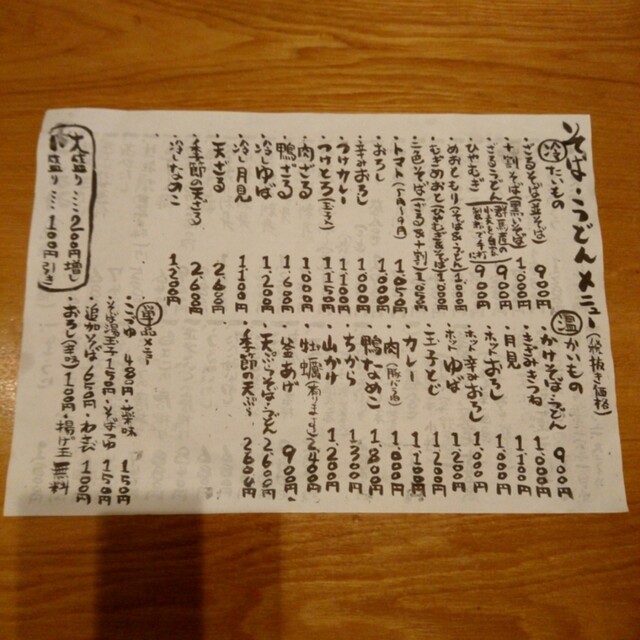 そば・うどんメニュー
(税抜き価格)
冷たいもの
・ざるそば(並そば) 900円
・十割そば(黒いそば) 1,000円
・ざるうどん 900円
・ひやむぎ 900円
・めおともり(そば&うどん) 1,000円
・むぎめおと(ひやむぎ&そば) 1,000円
・二色そば(ざる&十割)
・トマト
・おろし 1,000円
・辛みおろし 1,000円
・つけカレー 1,100円
・つけとろ(玉子) 1,150円
・肉ざる 1,000円
・鴨ざる 1,600円
・冷しゆば 1,200円
・冷し月見 1,100円
・天ざる 2,600円
・季節の天ざる 2,600円
・冷しなめこ 1,200円
大盛り…200円増し
小盛り…100円引き
温かいもの
・かけそば・うどん 900円
・きざみきつね 1,000円
・月見 1,100円
・ホットおろし 1,000円
・ホット辛みおろし 1,000円
・ホットゆば 1,200円
・玉子とじ 1,200円
・カレー 1,100円
・肉(豚バラ) 1,000円
・鴨なめこ 1,800円
・ちから 1,300円
・山かけ 1,200円
・牡蠣(有ります)
・釜あげ 900円
・天ぷらそば・うどん 2,600円
・季節の天ぷら
単品メニュー
・薬味 150円
・そば湯玉子 150円・そばつゆ 150円
・追加そば 650円・わさび 100円
・おろし 100円・揚げ玉 無料